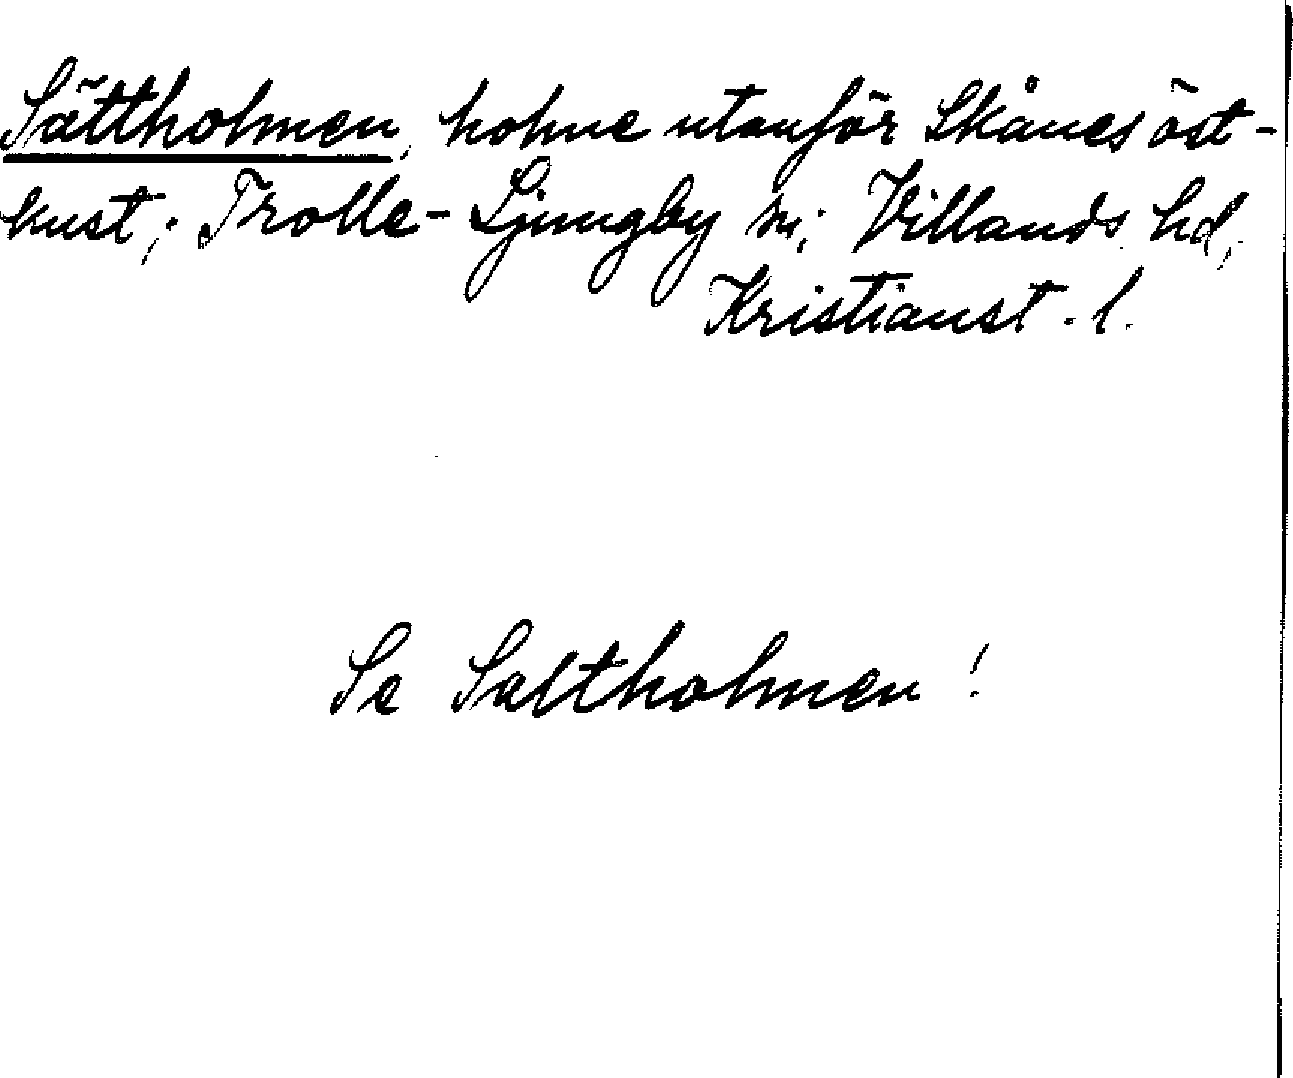 Sättholmen, holme utanför Skånes öst-
kust; Trolle-Ljungby sn; Villands hd,
Kristianst. l.
Se Saltholmen!